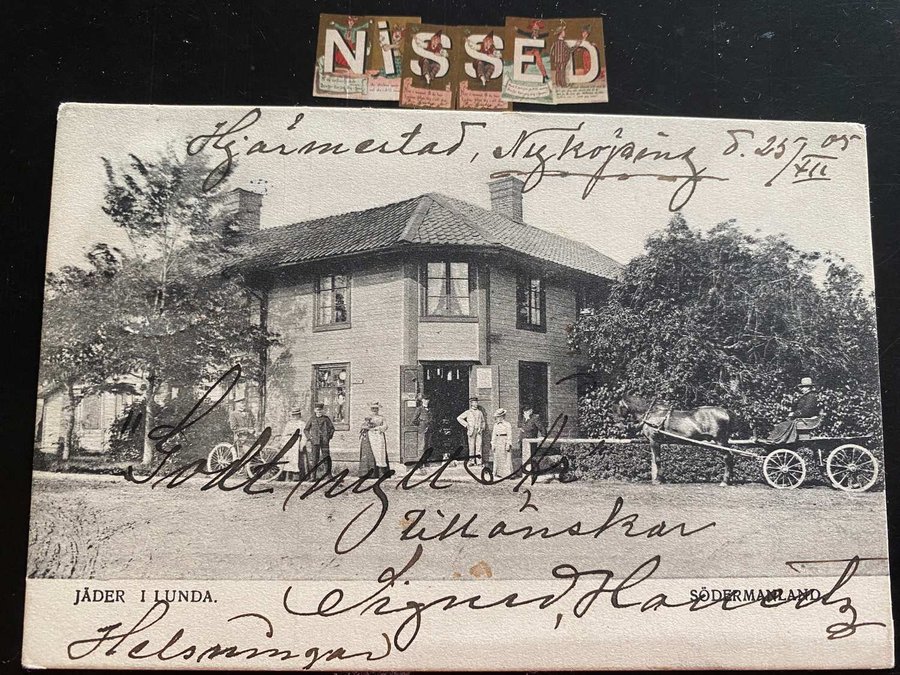 NiSSED
Hjärmestad, Nyköping d. 23/XII 05
"Godt nytt År"
tillönskar
Signed,
JÄDER I LUNDA.
SÖDERMANLAND.
Helsningar